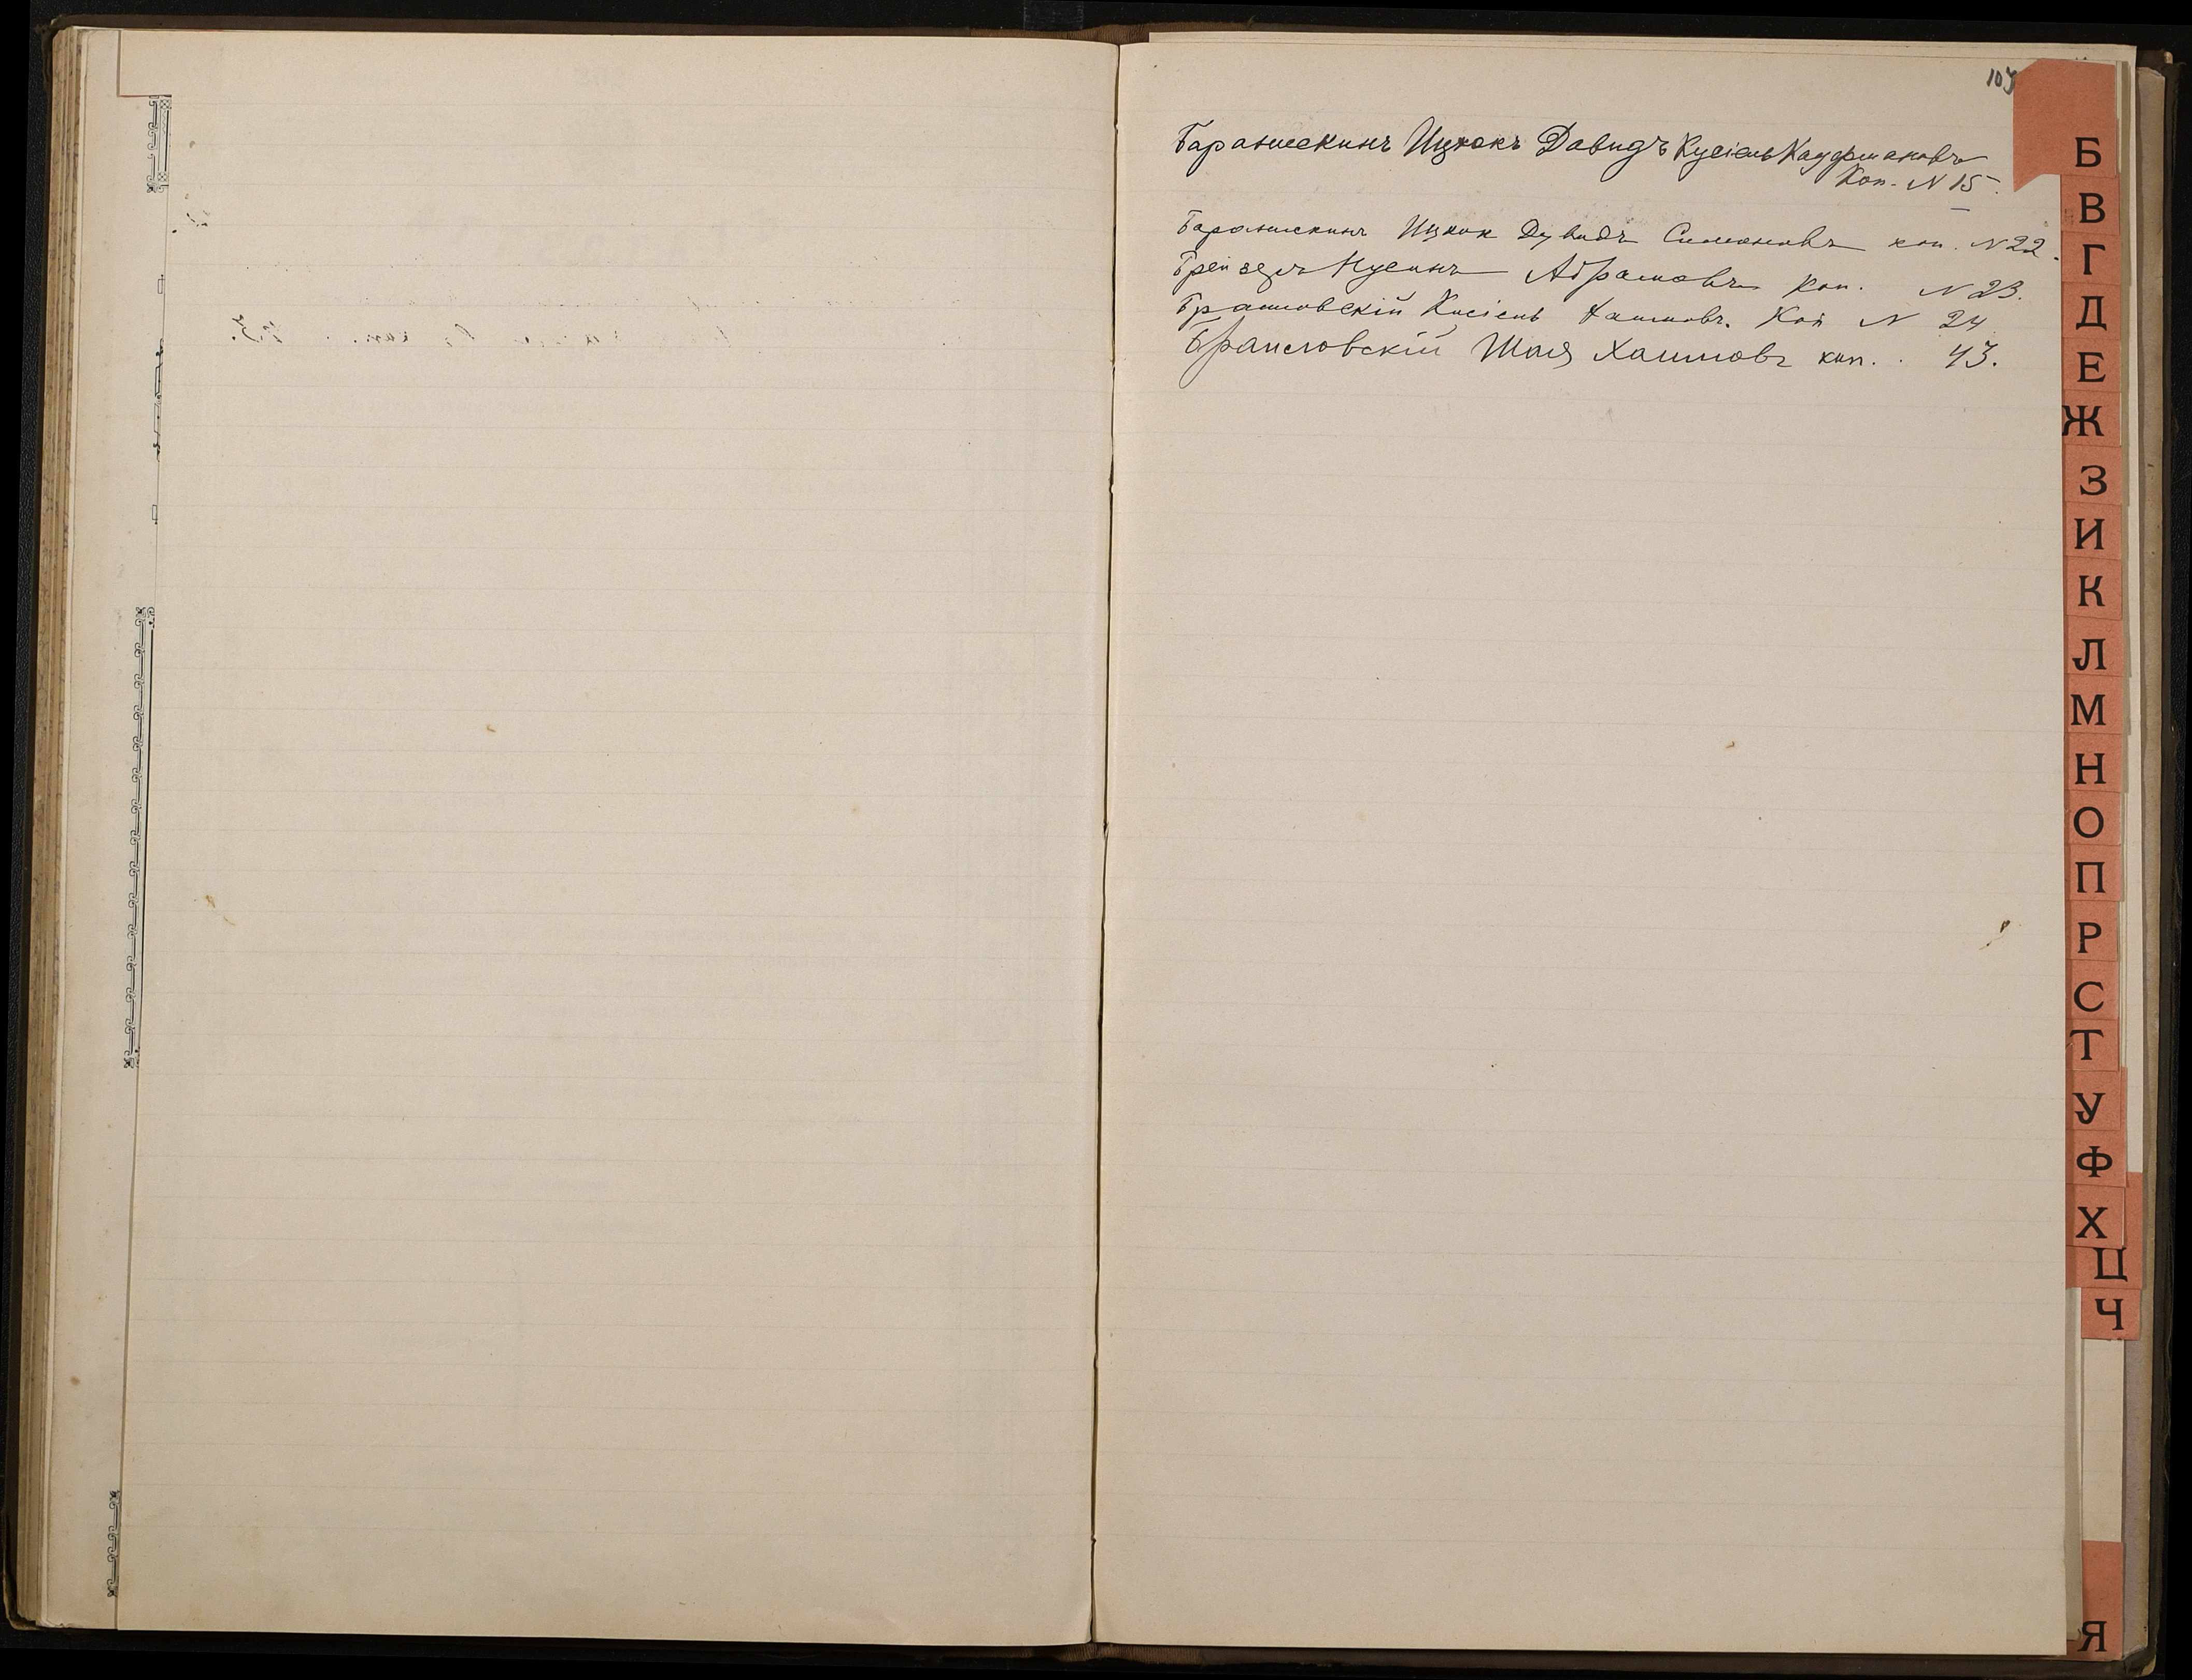 107
Баранчекинъ Ицкокъ Давидъ Кусіель Кауфмановъ
Коп. N 15.
Баранчекинъ Ицкок Дувидъ Симоновъ коп. N 22.
Брейзеръ Нусинъ Абрамовъ Коп. N 23.
Брамовскій Кисіель Хаимовъ. Коп N 24
Браиловскій Шая Хаимовъ коп. . 43.
Б
В
Г
Д
Е
Ж
З
И
К
Л
М
Н
О
П
Р
С
Т
У
Ф
Х
Ц
Ч
Я